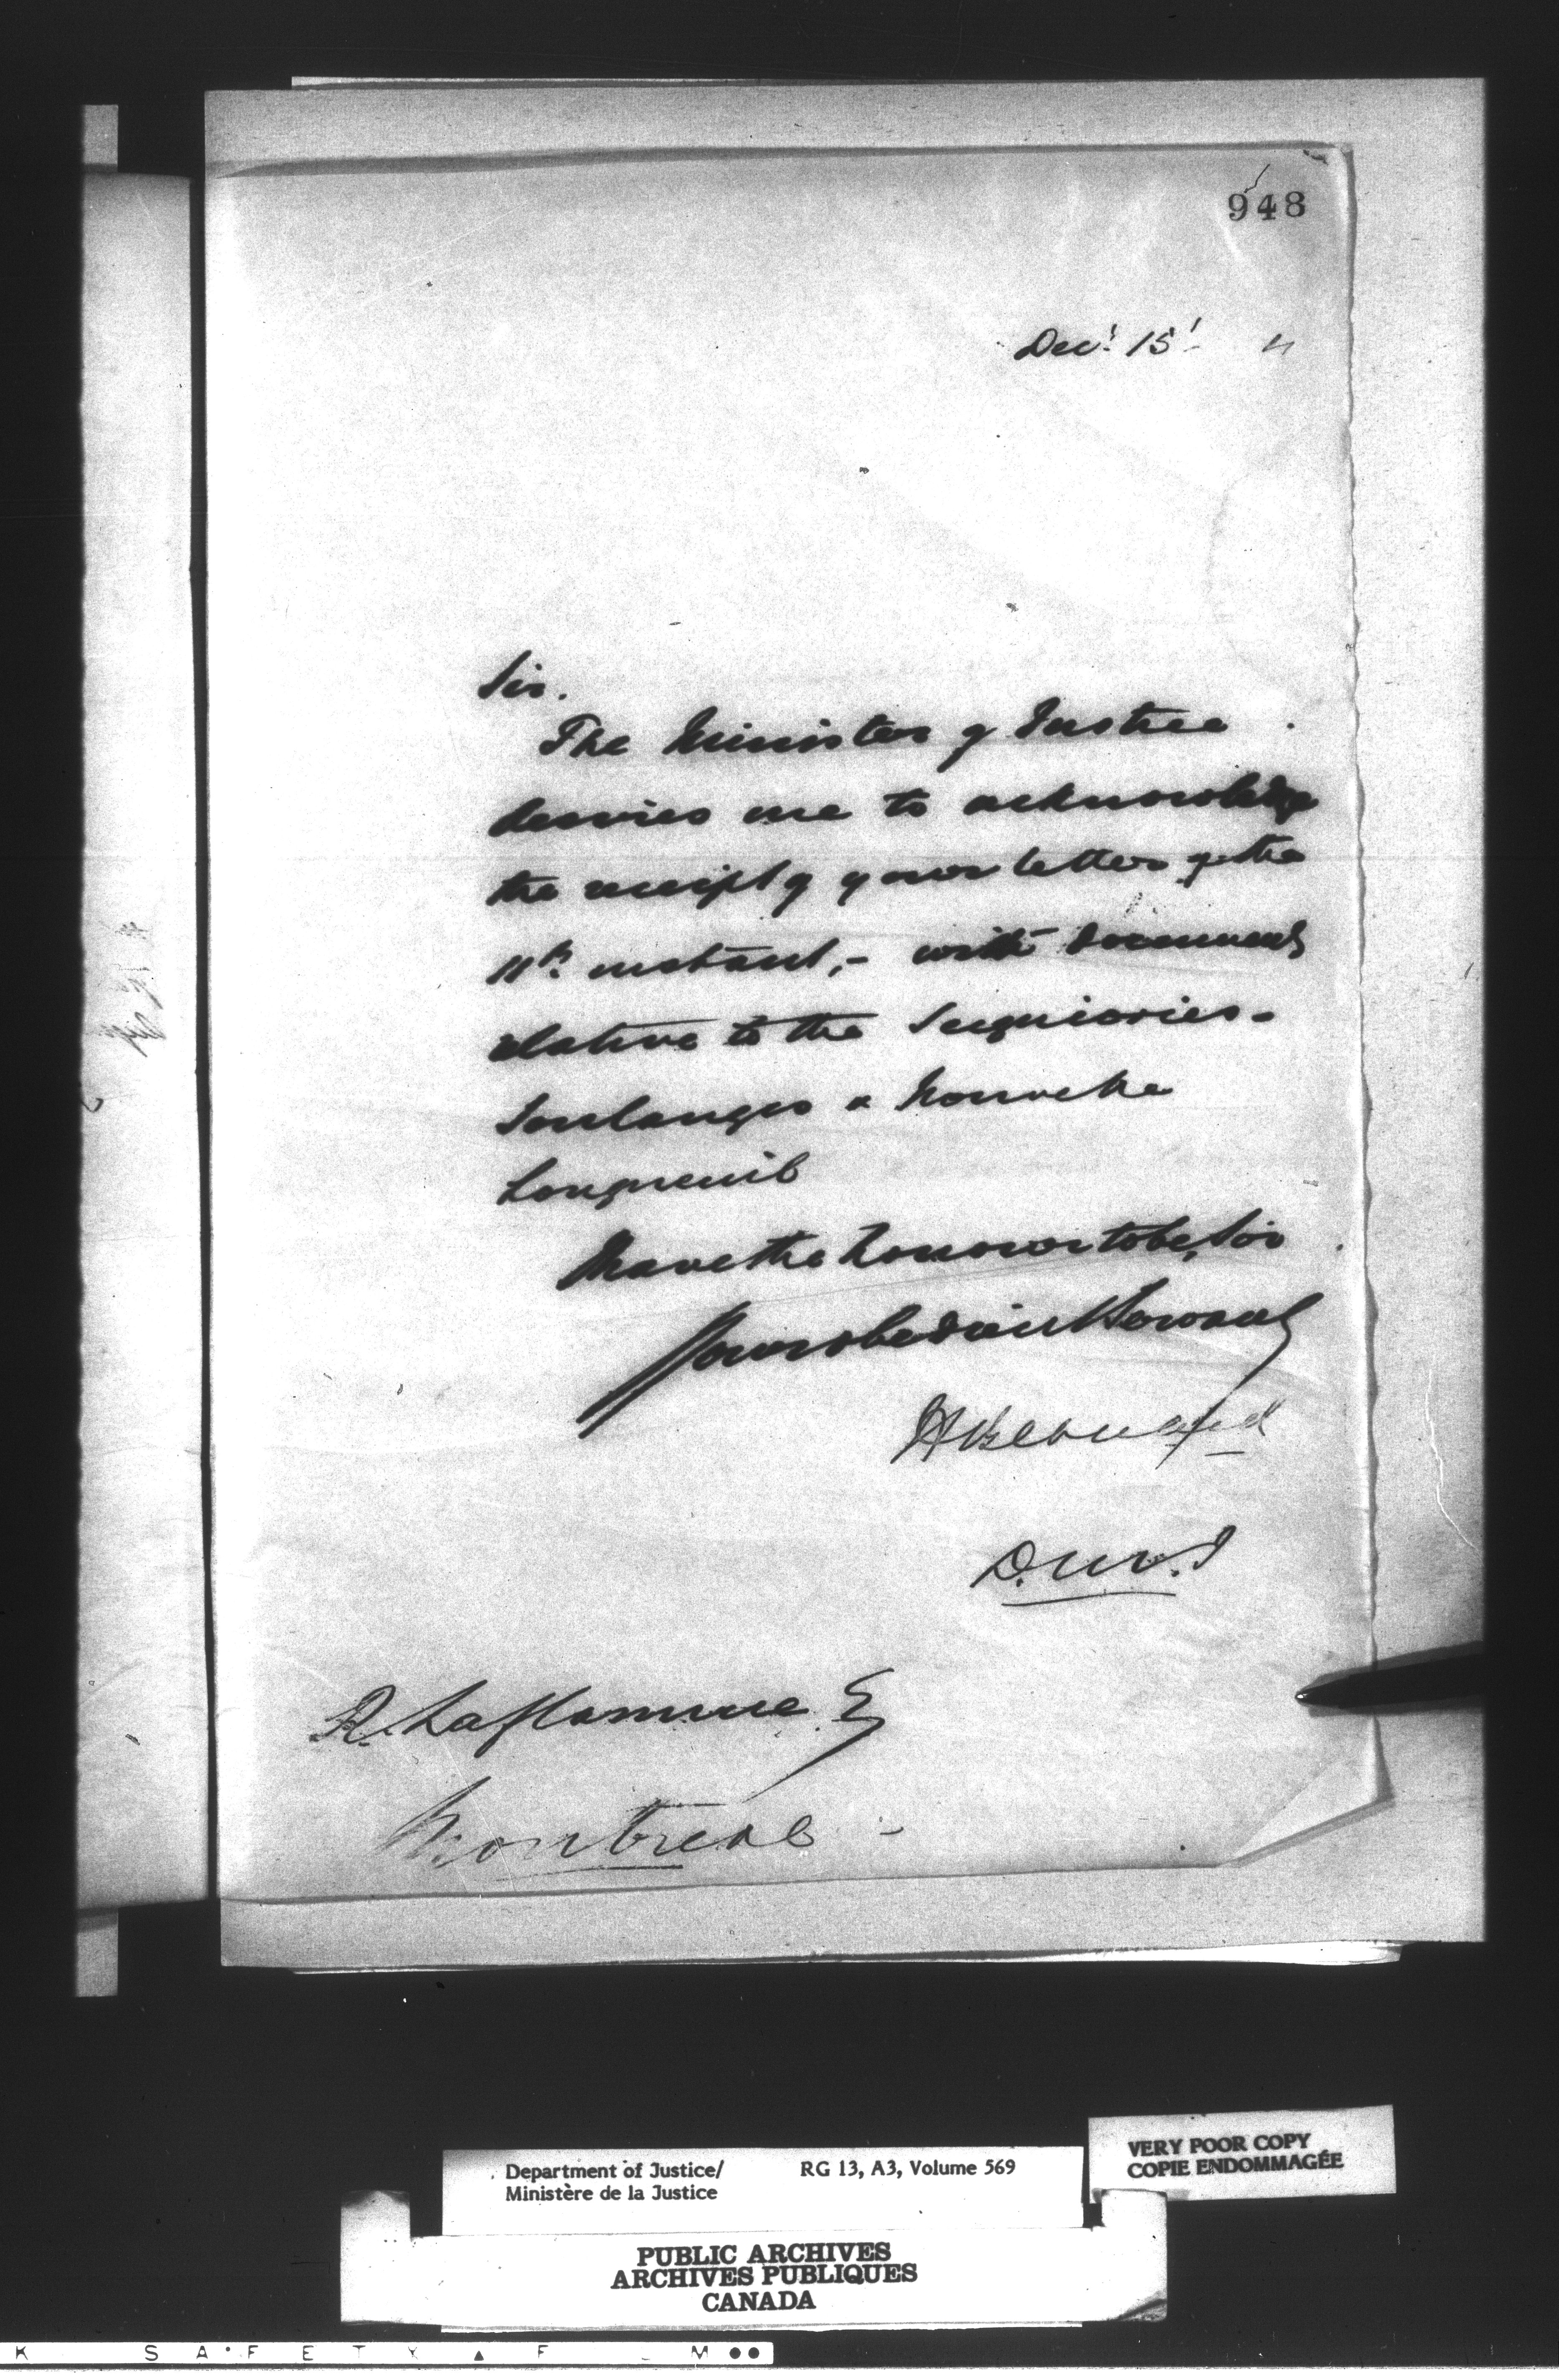 948
Decr 15th
Sir.
The Minister of Justice
desires me to acknowledge
the receipt of your letter of the
11th instant,- with documents
relative to the Seigniories-
Soulanges & Nouvelle
Longueuil
I have the honour to be, Sir
Your obedient Servant
H Bernard
D.M.J
R. Laflamme E
Montreal -
Department of Justice/
Ministère de la Justice
RG 13, A3, Volume 569
VERY POOR COPY
COPIE ENDOMMAGÉE
PUBLIC ARCHIVES
ARCHIVES PUBLIQUES
CANADA
K SAFETY ▲ F M ●●